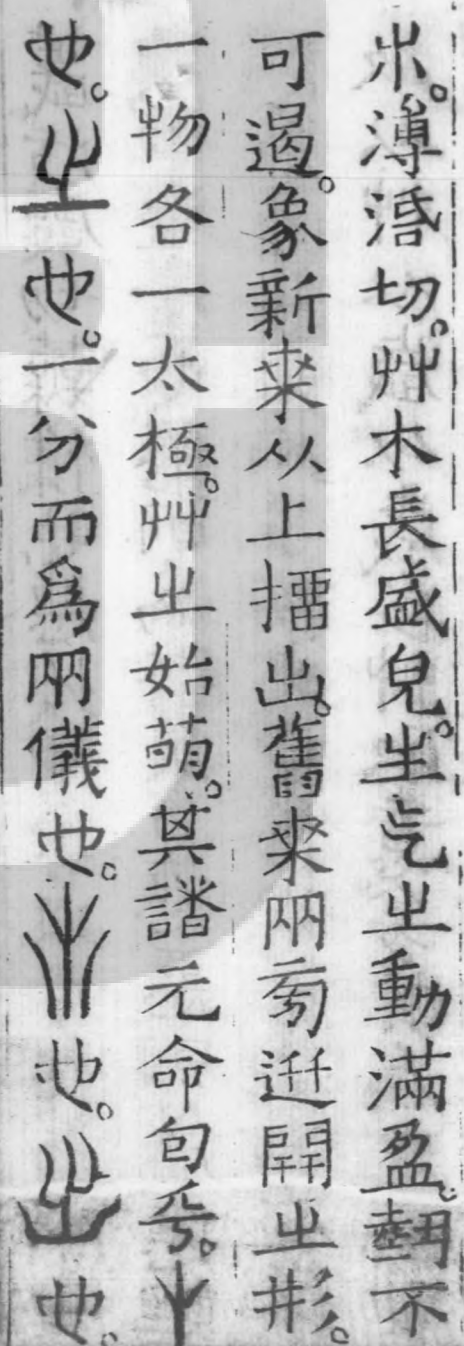 𣎵。溥活切。艸木長盛皃。生气㞢動滿盈。埶不
可遏。象新來从上擂出。舊來兩旁逝開㞢形。
一物各一太極。艸㞢始萌。其譜元命包乎。屮
也。㞢也。一分而爲兩儀也。艸也。出也。